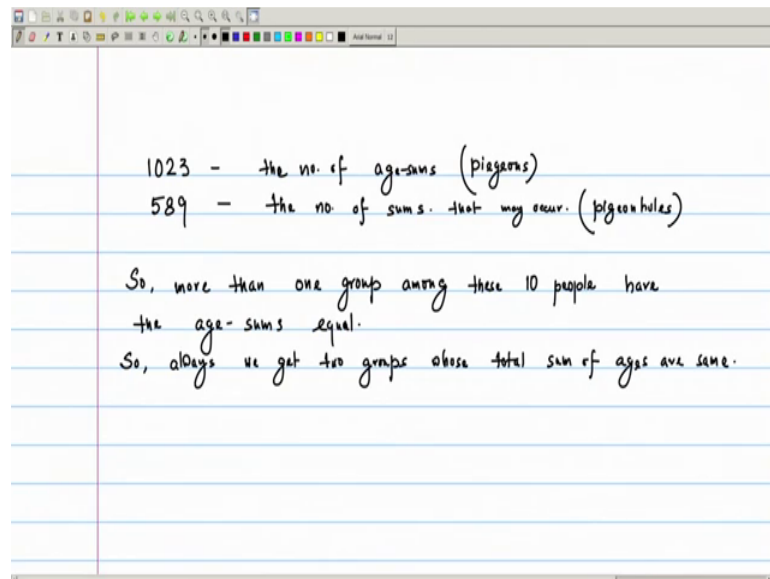 Arial Normal 12
1023 - the no. of age-sums (piegeons)
589 - the no. of sums. that may occur. (pigeonholes)
So, more than one group among these 10 people have
the age-sums equal.
So, always we get two groups whose total sum of ages are same.